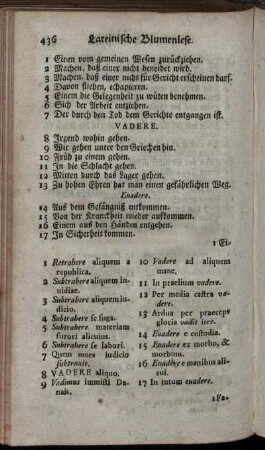 436 Lateinische Blumenlese.
1 Einen vom gemeinen Wesen zurückziehen.
2 Machen, daß einer nicht beneidet wird.
3 Machen, daß einer nicht für Gericht erscheinen darf.
4 Davon fliehen, echapieren.
5 Einem die Gelegenheit zu wüten benehmen.
6 Sich der Arbeit entziehen.
7 Der durch den Tod dem Gerichte entgangen ist.
VADERE.
8 Irgend wohin gehen.
9 Wir gehen unter den Griechen hin.
10 Früh zu einem gehen.
11 In die Schlacht gehen.
12 Mitten durch das Lager gehen.
13 Zu hohen Ehren hat man einen gefährlichen Weg.
Euadere.
14 Aus dem Gefängniß entkommen.
15 Von der Kranckheit wieder aufkommen.
16 Einem aus den Händen entgehen.
17 In Sicherheit kommen.
1 Ei-
1 Retrahere aliquem a
republica.
2 Subtrahere aliquem in-
uidiae.
3 Subtrahere aliquem iu-
dicio.
4 Subtrahere se fuga.
5 Subtrahere materiam
furori alicuius.
6 Subtrahere se labori.
7 Quem mors iudicio
subtraxit.
8 VADERE aliquo.
9 Vadimus immisti Da-
nais.
10 Vadere ad aliquem
mane.
11 In praelium vadere.
12 Per media castra va-
dere.
13 Ardua per praeceps
gloria vadit iter.
14 Euadere e custodia.
15 Euadere ex morbo, &
morbum.
16 Euadere e manibus ali-
cui.
17 In tutum euadere.
1 Fa-